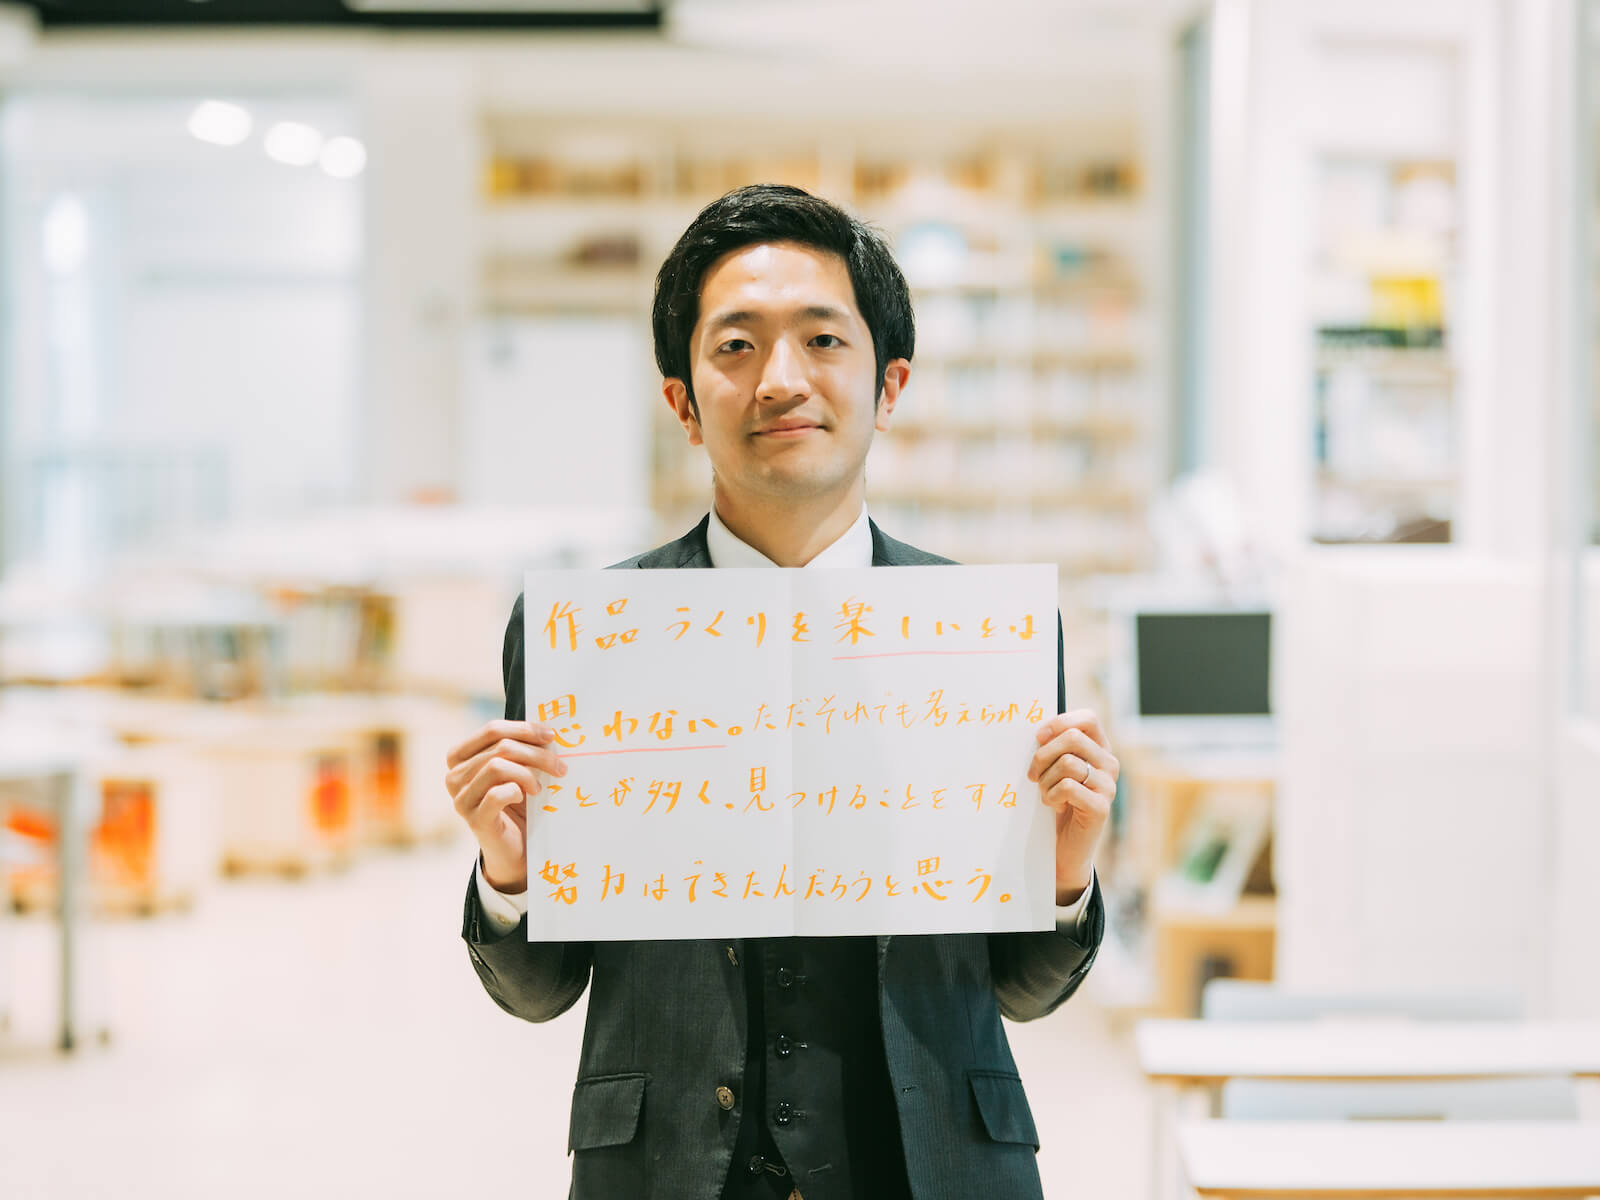 作品づくりを楽しいとは
思わない。ただそれでも考えられる
ことが多く、見つけることをする
努力はできたんだろうと思う。